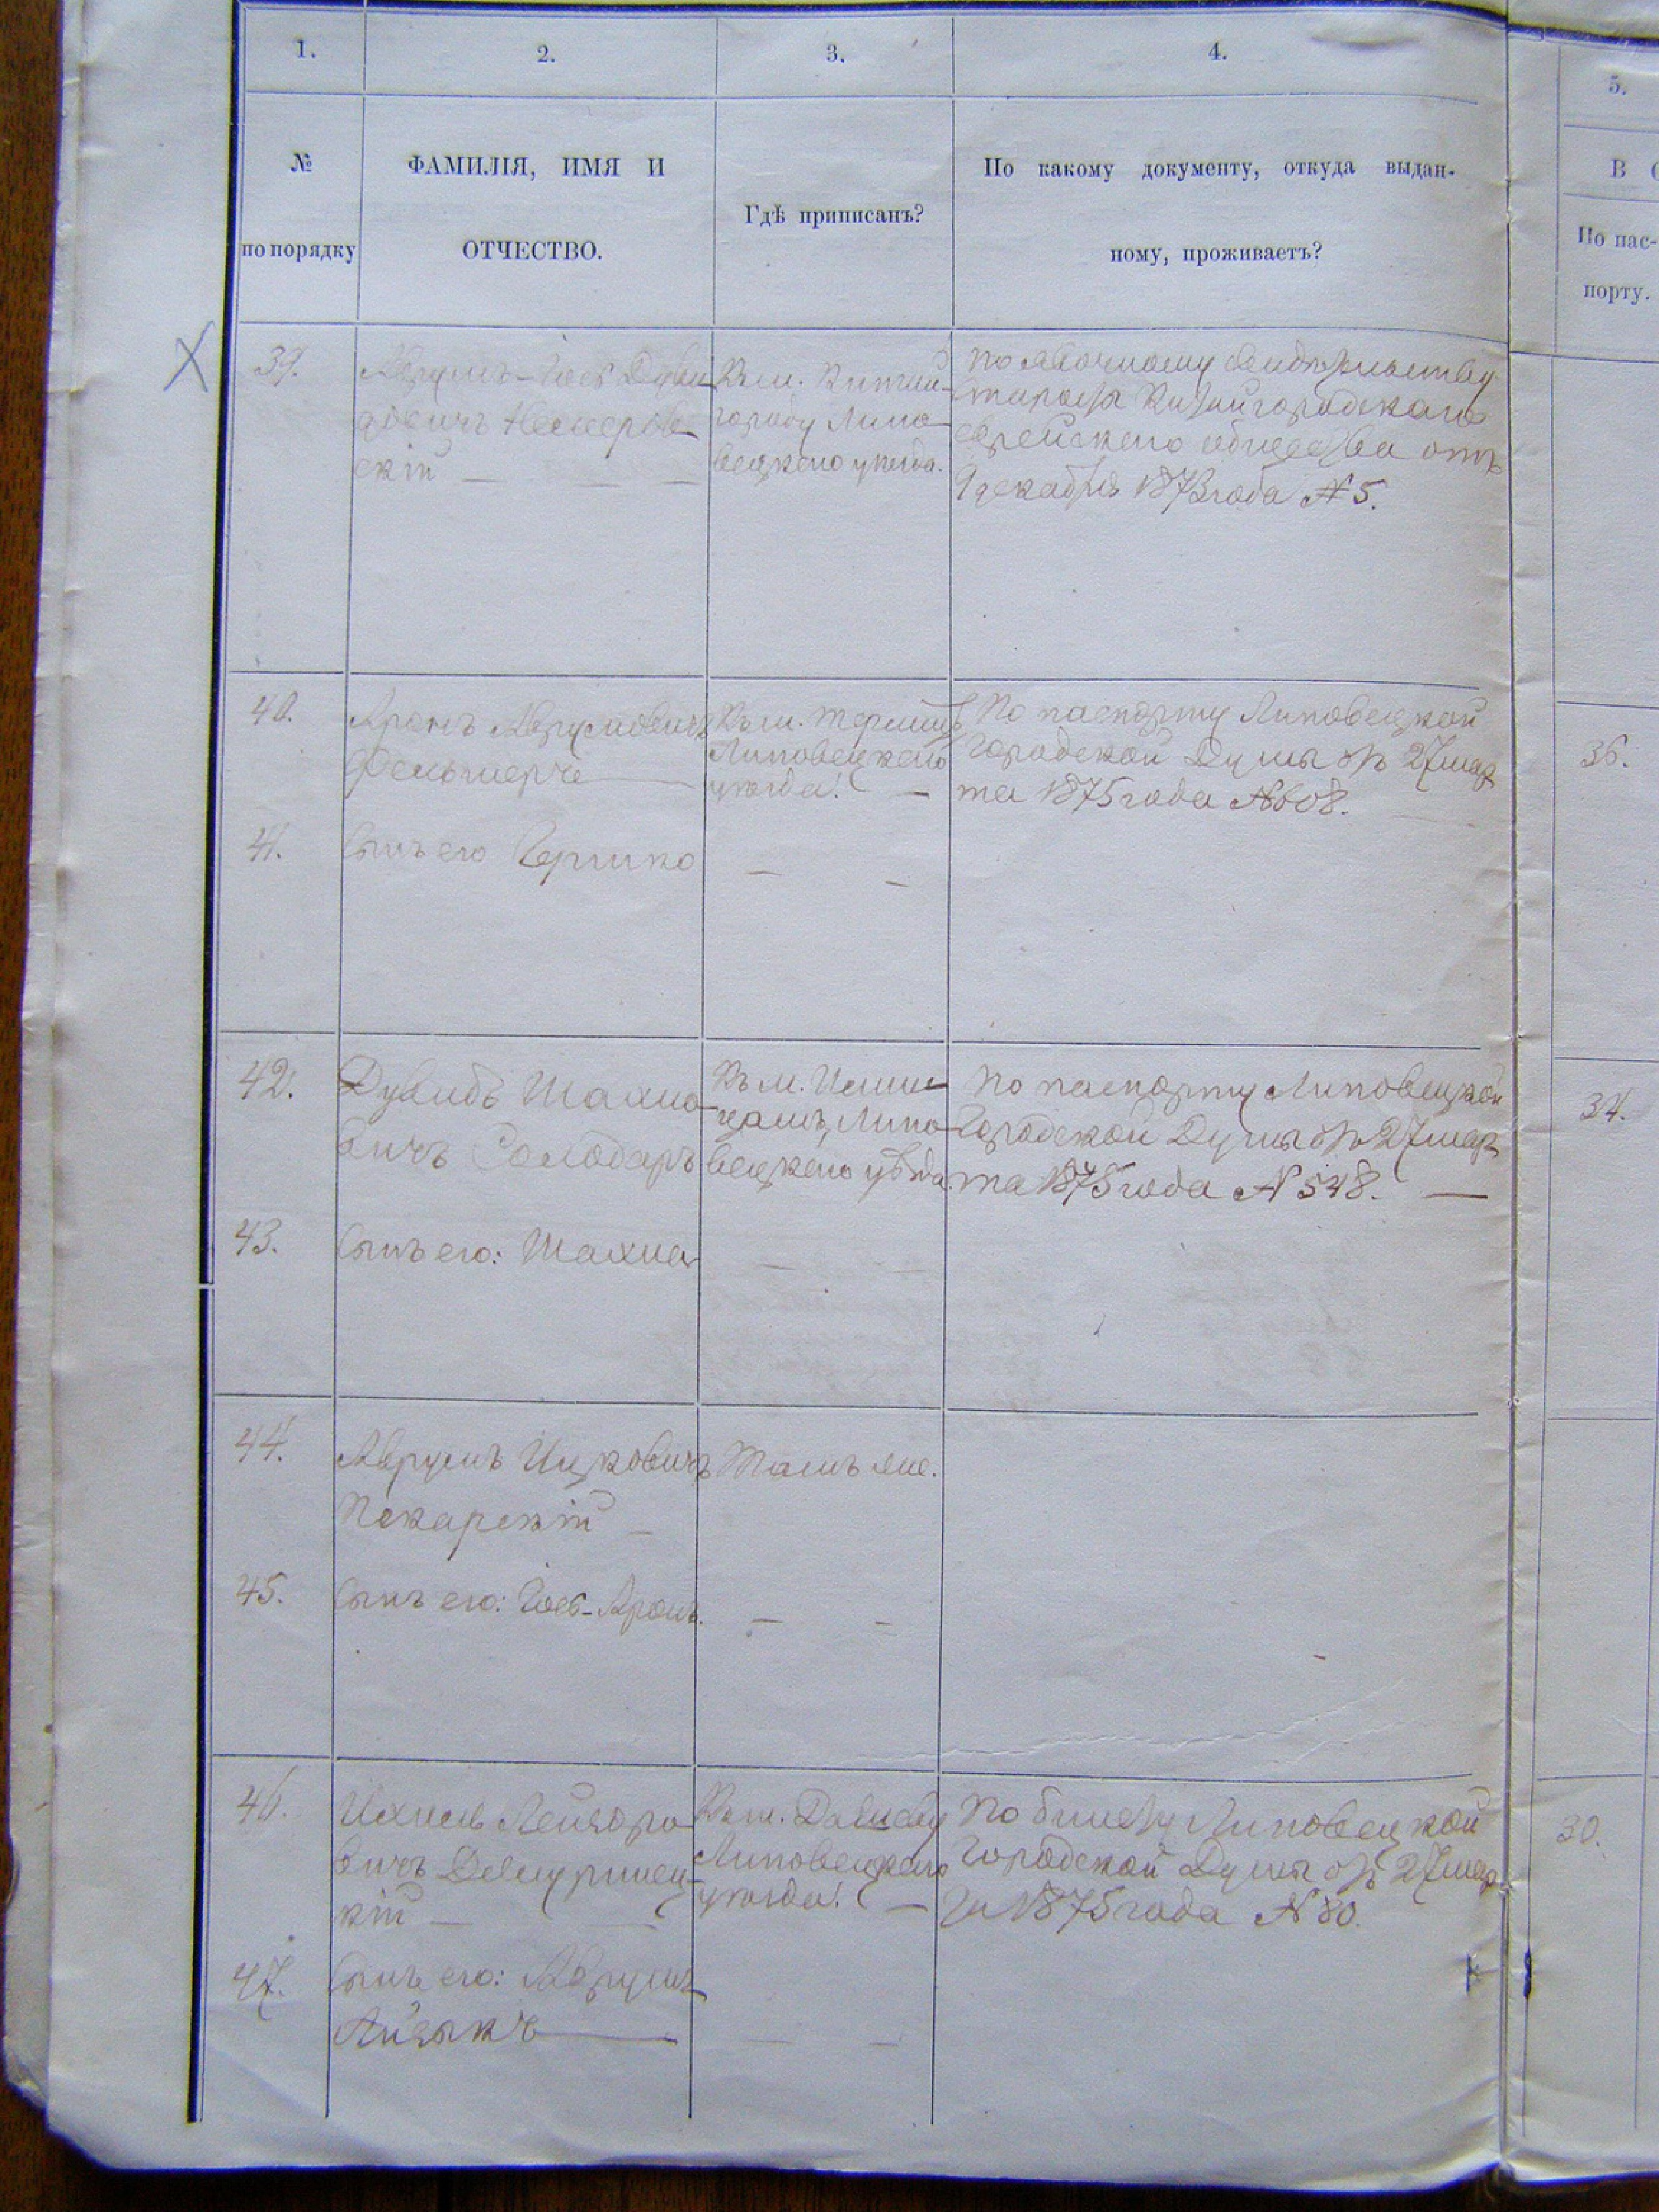 1.
2.
3.
4.
5.
№
по порядку
ФАМИЛІЯ, ИМЯ И
ОТЧЕСТВО.
Гдѣ приписанъ?
По какому документу, откуда выдан-
ному, проживаетъ?
В
По пас-
порту.
39.
Аврумъ-Іось Дуви
довичъ
скій — — —
Къ м. Китай-
городу Липо
вецкаго уѣзда.
По явочному свидѣтельству
старосты Китайгородскаго
еврейскаго общества отъ
9 декабря 1873 года № 5.
40.
Аронъ Аврумовичъ
Фельдшеръ
Къ м.
Липовецкаго
уѣзда. —
По паспорту Липовецкой
Городской Думы отъ 27 мар
та 1875 года № 608.
36.
41.
Сынъ его Гершко
— —
42.
Дувидъ Шахно
вичъ Солодарь
Къ м. Ильин
цамъ, Липо
вецкаго уѣзда.
По паспорту Липовецкой
Городской Думы отъ 27 мар
та 1875 года № 548. —
34.
43.
Сынъ его: Шахна
— —
44.
Аврумъ Ицковичъ
Пекарскій —
Тамъ же.
45.
Сынъ его: Іось-Аронъ.
— —
46.
Ихиель Лейзоро
вичъ
кій — —
Къ м. Дашеву
Липовецкаго
уѣзда. —
По билету Липовецкой
Городской Думы отъ 27 мар
та 1875 года № 80.
30.
47.
Сынъ его: Аврумъ
Айзыкъ
— —